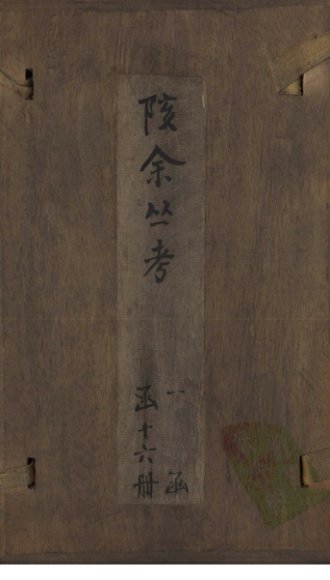 陔余丛考
一函
函十六册